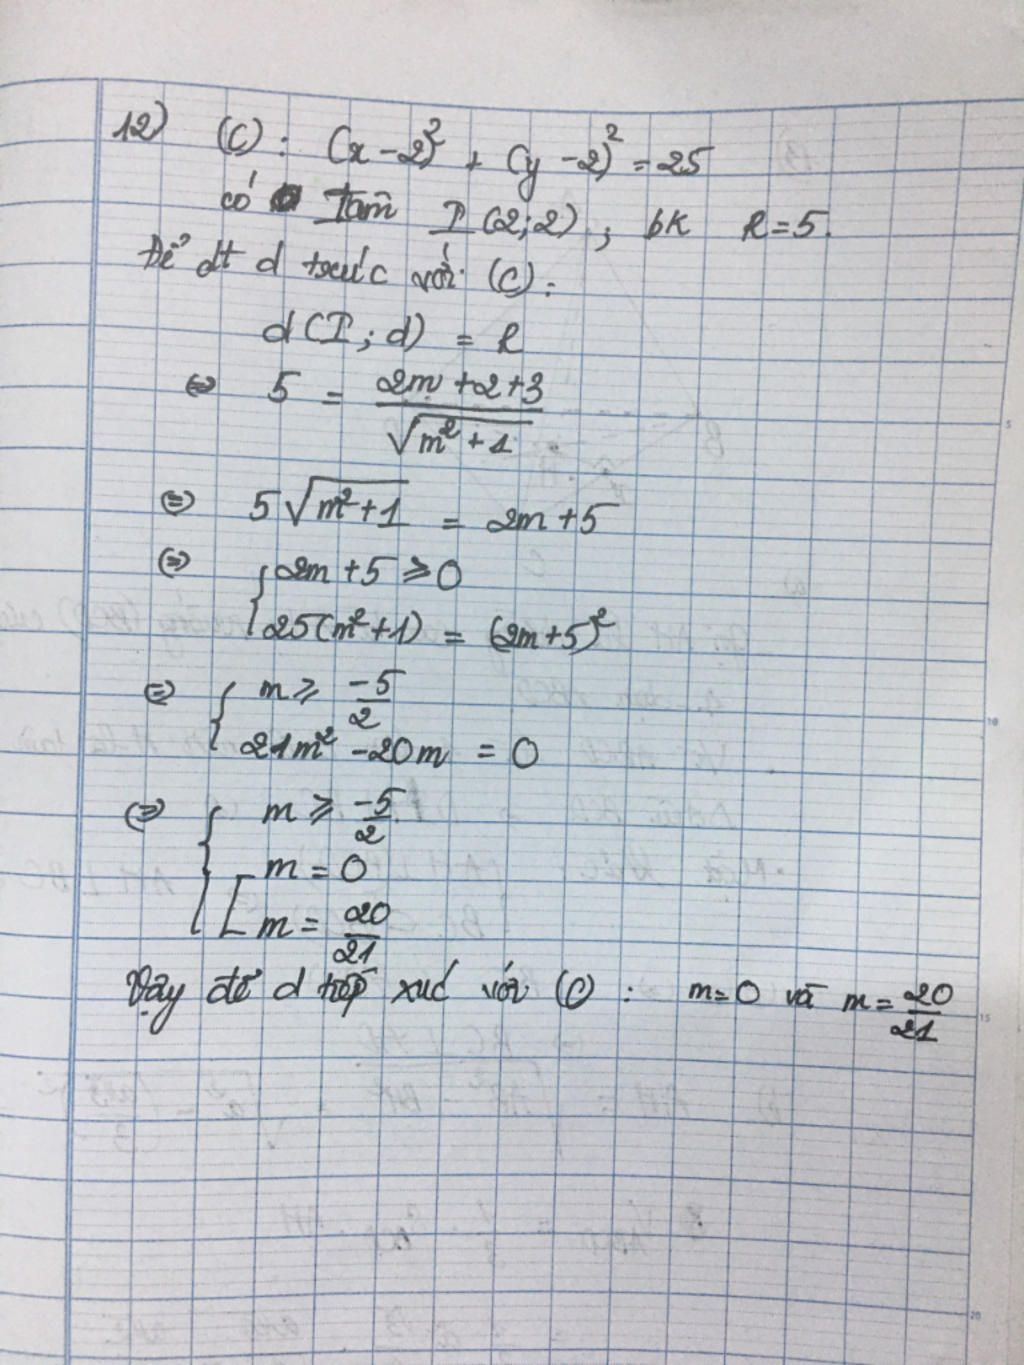 12) (C): (x-2)² + (y-2)² = 25
có Tâm I(2;2), bk R=5.
Để đt d txúc với (C):
d(I;d) = R
⇔ 5 = \frac{2m+2+3}{\sqrt{m²+1}}
⇔ 5\sqrt{m²+1} = 2m+5
⇔ { 2m+5 ≥ 0
25(m²+1) = (2m+5)²
⇔ { m ≥ \frac{-5}{2}
21m² -20m = 0
⇔ { m ≥ \frac{-5}{2}
[ m = 0
m = \frac{20}{21}
Vậy để d tiếp xúc với (C): m=0 và m=\frac{20}{21}
5
10
15
20